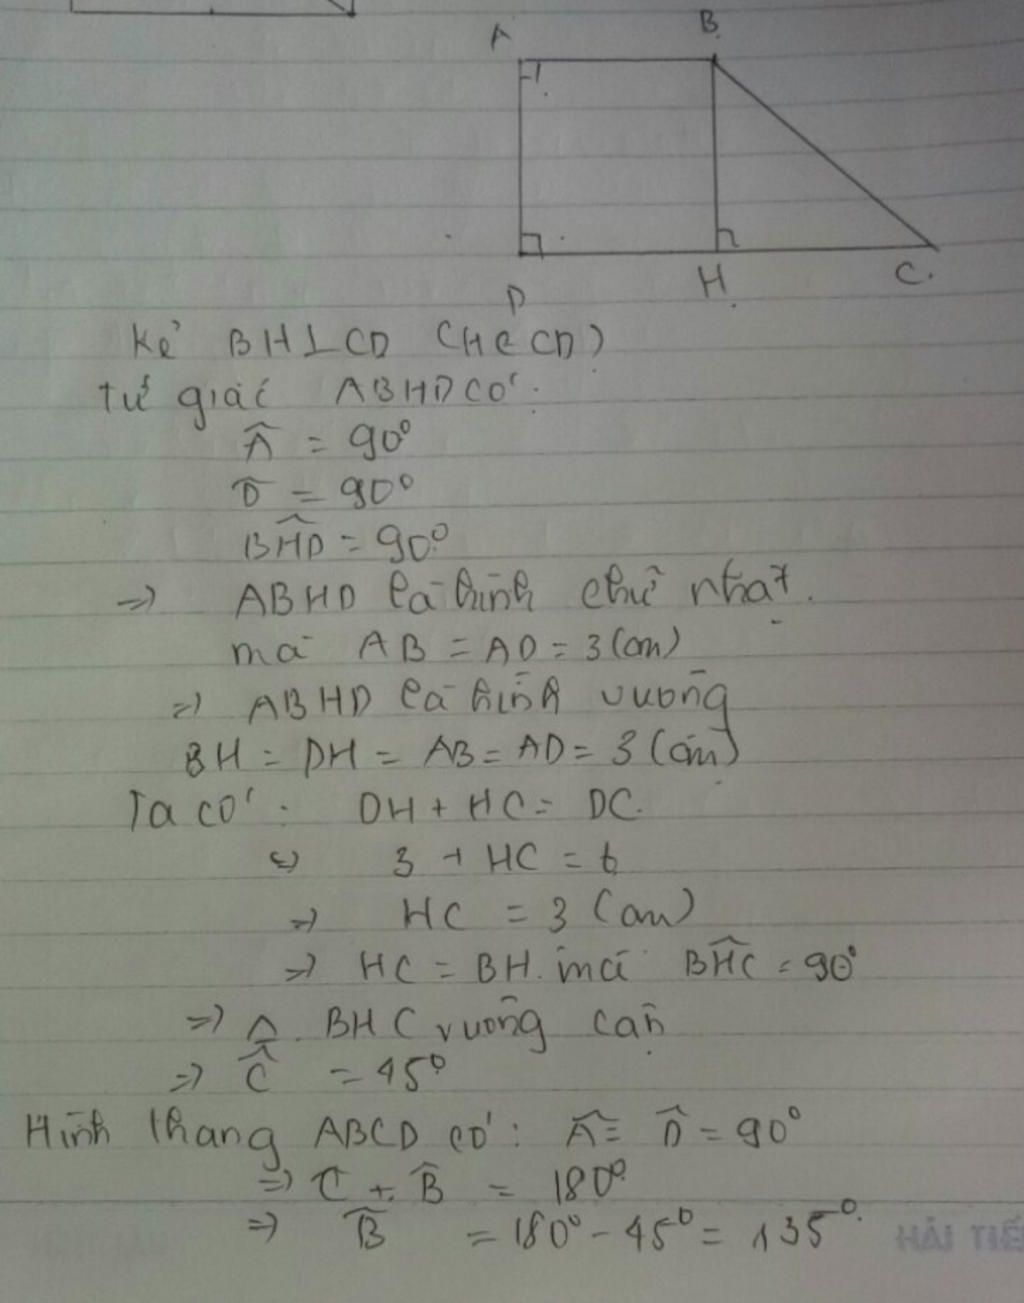 A B
D H C.
Kẻ BH⊥CD (H∈CD)
Tứ giác ABHD có:
Â = 90°
D̂ = 90°
BĤD = 90°
=> ABHD là hình chữ nhật.
mà AB = AD = 3 (cm)
=> ABHD là hình vuông
BH = DH = AB = AD = 3 (cm)
Ta có: DH + HC = DC.
<=> 3 + HC = 6
=> HC = 3 (cm)
=> HC = BH. mà BĤC = 90°
=> Δ BHC vuông cân
=> Ĉ = 45°
Hình thang ABCD có: Â = D̂ = 90°
=> Ĉ + B̂ = 180°
=> B̂ = 180° - 45° = 135°
HẢI TIẾ